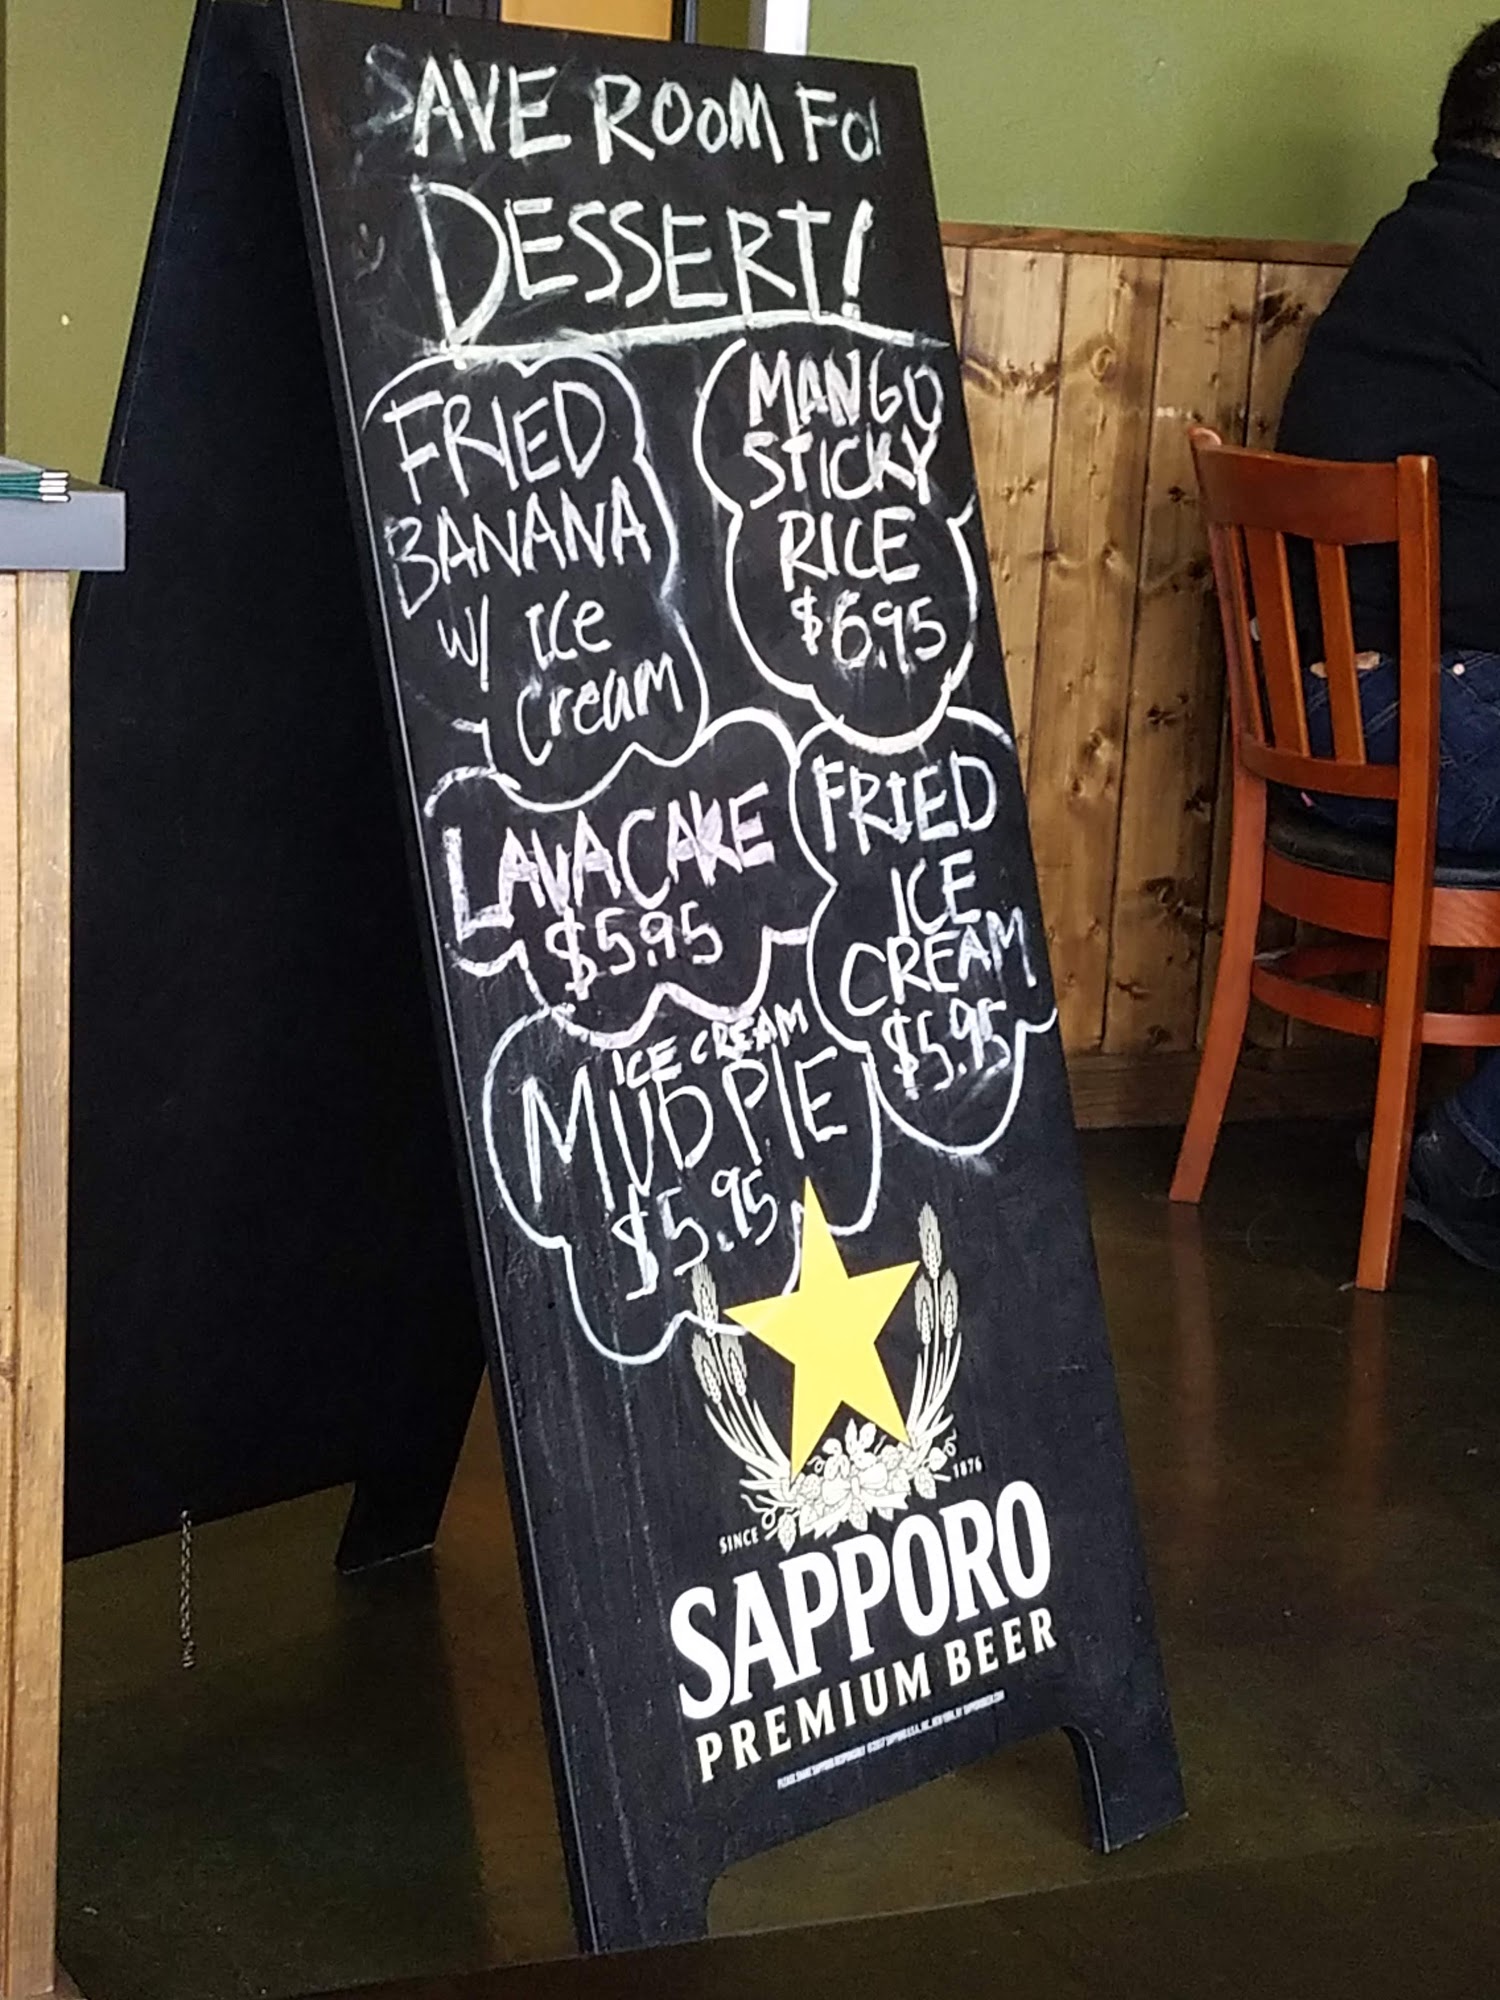 SAVE ROOM FO
DESSERT!
FRIED
BANANA
W/ ICe
Cream
MANGO
STICKY
RICE
$6.95
LAVA CAKE
$5.95
FRIED
ICE
CREAM
$5.95
ICE CREAM
MUD PIE
$5.95
SINCE 1876
SAPPORO
PREMIUM BEER